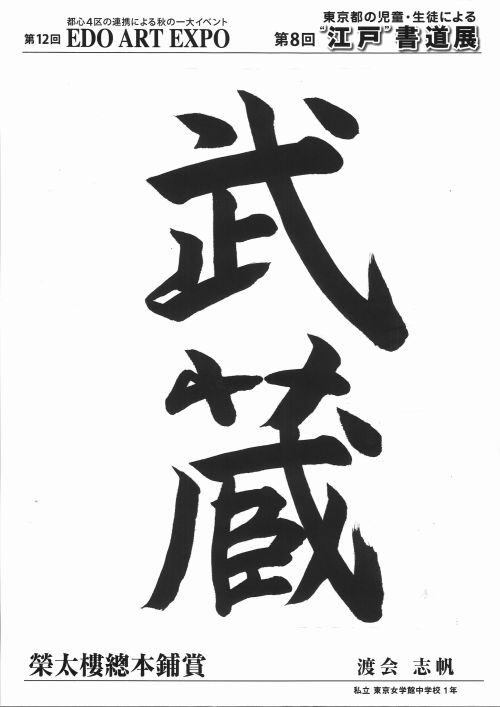 都心4区の連携による秋の一大イベント
第12回 EDO ART EXPO
東京都の児童・生徒による
第8回 “江戸”書道展
武蔵
榮太樓總本鋪賞
渡会 志帆
私立 東京女学館中学校 1年